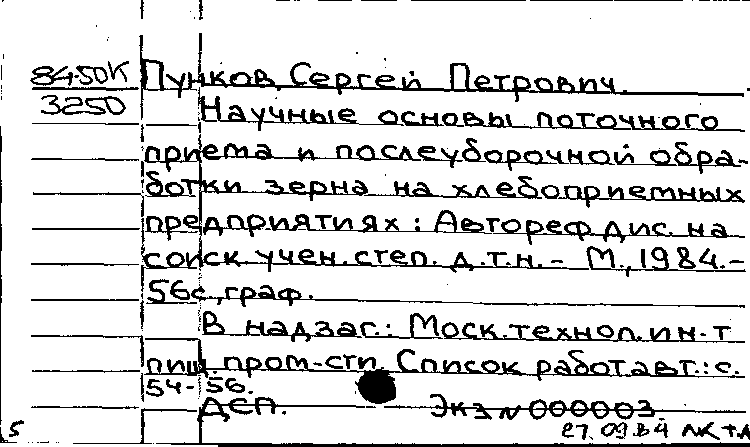 8450К Пунков, Сергей Петрович.
3250 Научные основы поточного
приема и послеуборочной обра-
ботки зерна на хлебоприемных
предприятиях: Автореф. дис. на
соиск. учен. степ. д.т.н. - М., 1984. -
56с., граф.
В надзаг.: Моск. технол. ин-т
пищ. пром-сти. Список работ авт.: с.
54-56.
ДСП. Экз N 000003.
5 27.09.84